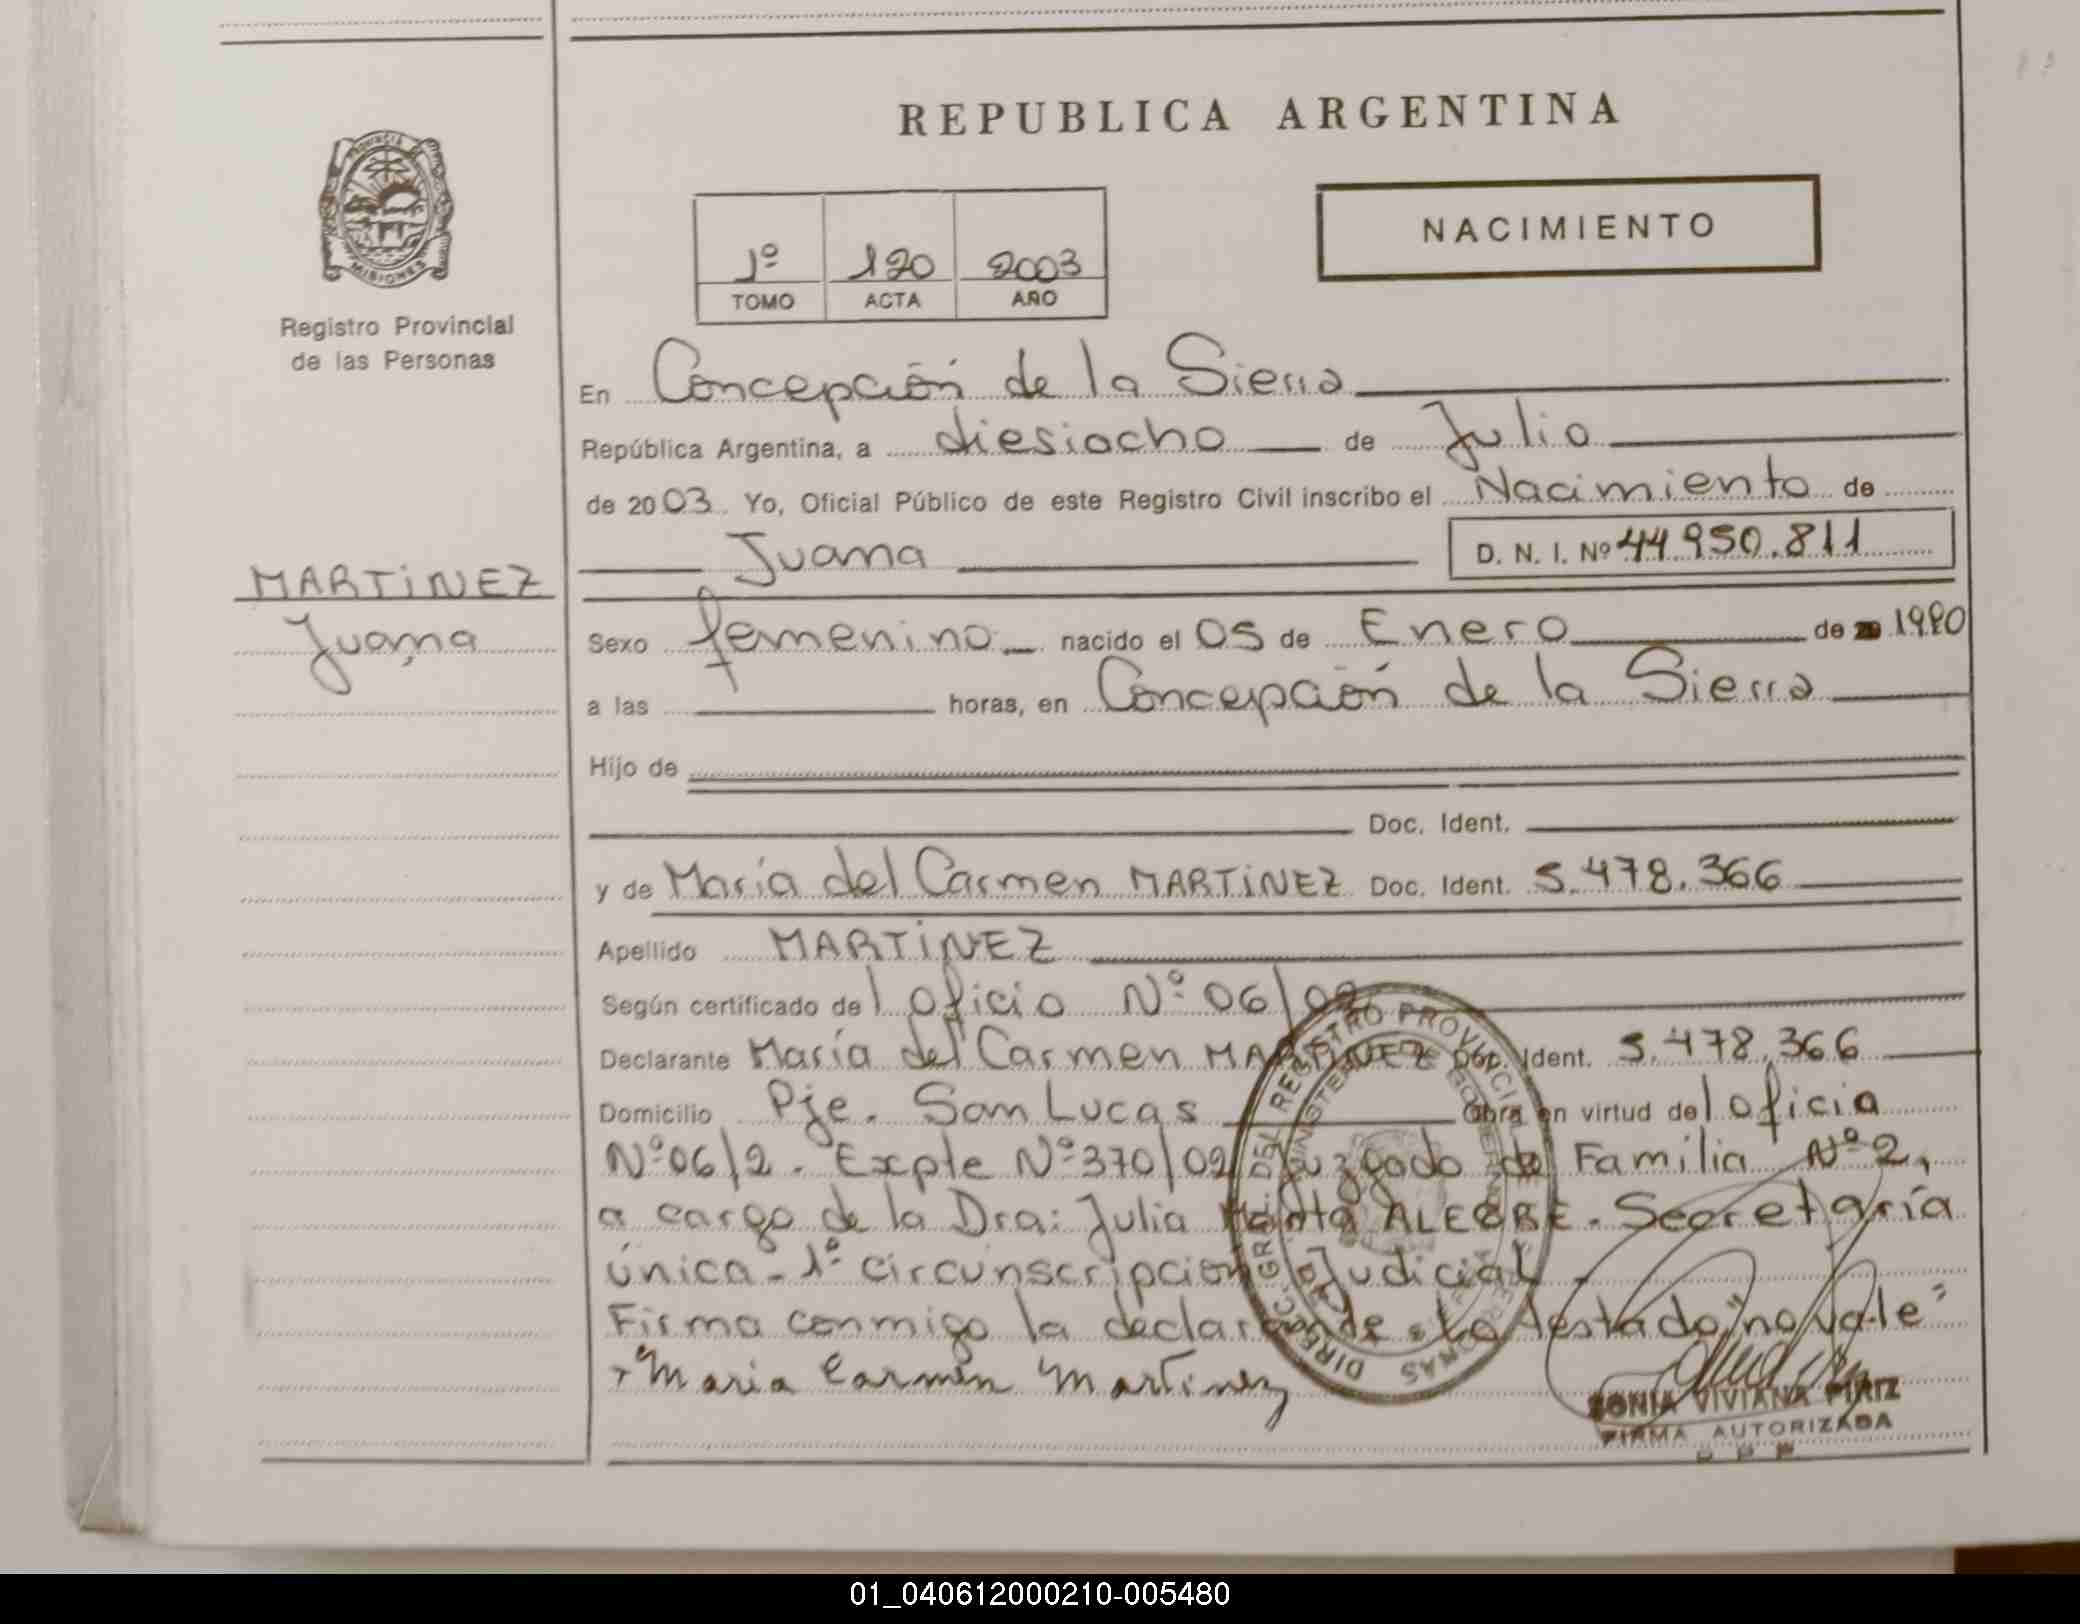 REPUBLICA ARGENTINA
PROVINCIA DE
MISIONES
Registro Provincial
de las Personas
NACIMIENTO
1º 120 2003
TOMO ACTA AÑO
En Concepción de la Sierra
República Argentina, a diesiocho de Julio
de 2003. Yo, Oficial Público de este Registro Civil inscribo el Nacimiento de
Juana D. N. I. Nº 44.950.811
MARTiNEZ
Juana
Sexo femenino nacido el 05 de Enero de 1980
a las horas, en Concepción de la Sierra
Hijo de
Doc. Ident.
y de María del Carmen MARTiNEZ Doc. Ident. 5.478.366
Apellido MARTiNEZ
Según certificado del oficio Nº 06/02
Declarante María del Carmen MARTiNEZ Doc. Ident. 5.478.366
Domicilio Pje. San Lucas Obra en virtud del oficio
Nº 06/2. Expte Nº 370/02 Juzgado de Familia Nº 2,
a cargo de la Dra: Julia ALEGRE. Secretaría
única - 1º circunscripción Judicial.
Firma conmigo la declarante. Lo testado "no vale"
+ Maria Carmen Martinez
DIREC. GRAL. DEL REGISTRO PROVINCIAL
SONIA VIVIANA PIRIZ
FIRMA AUTORIZADA
01_040612000210-005480